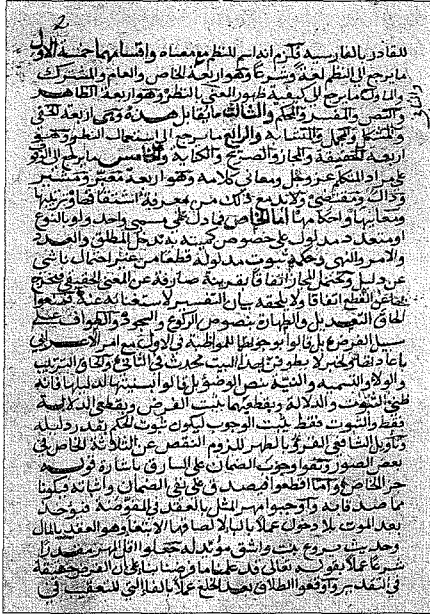 2
للقادر بالفارسية فلزم انه اسم للنظم مع معناه واقسامهما خمسة الاول
ما يرجع الى النظم لغة وشرعا وهو اربعة الخاص والعام والمشترك
والماول ما يرجع الى كيفية ظهور المعنى بالنظم وهو اربعة الظاهر
والثاني
والنص والمفسر والمحكم والثالث ما يقابل هذه وهي اربعة الخفي
والمشكل والمجمل والمتشابه والرابع ما يرجع الى استعمال النظم وهو
اربعة الحقيقة والمجاز والصريح والكناية والخامس ما يرجع الى الوقوف
على مراد المتكلم ومعاني كلامه وهو اربعة معبر ومشير
ودال ومقتضى ولا بد مع ذلك من معرفة اشتقاقها وترتيبها
ومعانيها واحكامها اما الخاص فما دل على مسمى واحد ولو بالنوع
او متعدد مدلول على خصوص كميته به تدخل المطلق والعدد
والامر والنهي وحكمه ثبوت مدلوله قطعا من غير احتمال ناشي
عن دليل ويحتمل المجاز اتفاقا بقرينة صارفة عن المعنى الحقيقي فيخرج
عن القطع اتفاقا ولا يلحقه بيان التفسير لاستغنائه عنه فمنعوا
الحاق التعديل والطهارة بنصوص الركوع والسجود والطواف على
سبيل الفرض بل قالوا بوجوبها للمواظبة في الاولى مع امر الاعرابي
باعادتها ولخبر لا يطوفن بهذا البيت محدث في الثاني والحاق الترتيب
والولاء والتسمية والنية بنص الوضوء بل قالوا بسنيتها لدليلها فانه
ظني الثبوت والدلالة وبقطعيهما يثبت الفرض وبقطعي الدلالة
فقط والثبوت فقط يثبت الوجوب ليكون ثبوت الحكم بقدر دليله
وتأويل الشافعي القروء بالطهر للزوم النقص عن الثلاثة الخاص في
بعض الصور ونفوا وجوب الضمان على السارق باشارة قوله
جزا الخاص واما اقطعوا فيصدق على نفي الضمان واثباته فيكونا
ما صدقاته واوجبوا مهر المثل بالعقد في المفوضة فيؤخذ
بعد الموت بلا دخول عملا بالبا لالصاقها الابتغاء وهو العقد بالمال
وحديث بروع بنت واشق مؤيد له جعلوا اقل المهر مقدرا
شرعا عملا بقوله تعالى قد علمنا ما فرضنا بناء على ان الفرض حقيقة
في التقدير واوقعوا الطلاق بعد الخلع عملا بالفا التي للتعقيب في